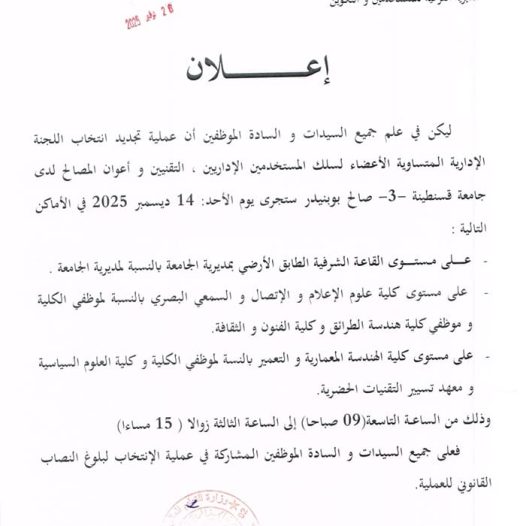 و التكوين
28 نوفمبر 2025
إعــــــلان
ليكن في علم جميع السيدات و السادة الموظفين أن عملية تجديد انتخاب اللجنة
الإدارية المتساوية الأعضاء لسلك المستخدمين الإداريين ، التقنيين و أعوان المصالح لدى
جامعة قسنطينة -3- صالح بوبنيدر ستجرى يوم الأحد: 14 ديسمبر 2025 في الأماكن
التالية :
- عــلى مستــوى القاعـة الشرفية الطابق الأرضي بمديرية الجامعة بالنسبة لمديرية الجامعة .
- على مستوى كلية علوم الإعلام و الإتصال و السمعي البصري بالنسبة لموظفي الكلية
و موظفي كلية هندسة الطرائق و كلية الفنون و الثقافة.
- على مستوى كلية الهندسة المعمارية و التعمير بالنسة لموظفي الكلية و كلية العلوم السياسية
و معهد تسيير التقنيات الحضرية.
وذلك من الساعة التاسعة(09 صباحا) إلى الساعة الثالثة زوالا ( 15 مساءا)
فعلى جميع السيدات و السادة الموظفين المشاركة في عملية الإنتخاب لبلوغ النصاب
القانوني للعملية.